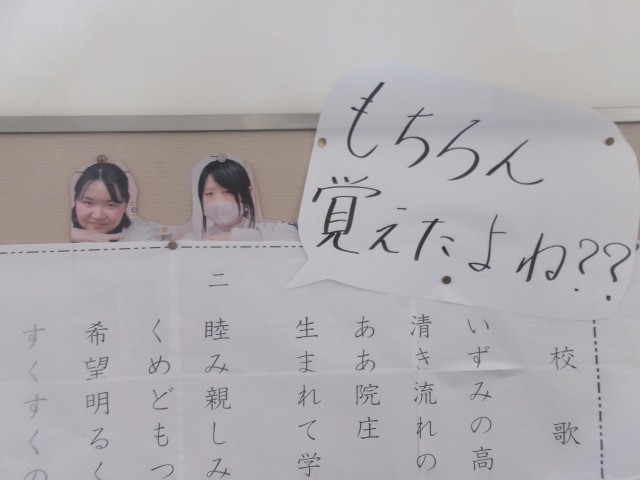 もちろん
覚えたよね??
校歌
いずみの高
清き流れの
ああ院庄
生まれて学
二 睦み親しみ
くめどもつ
希望明るく
すくすくの